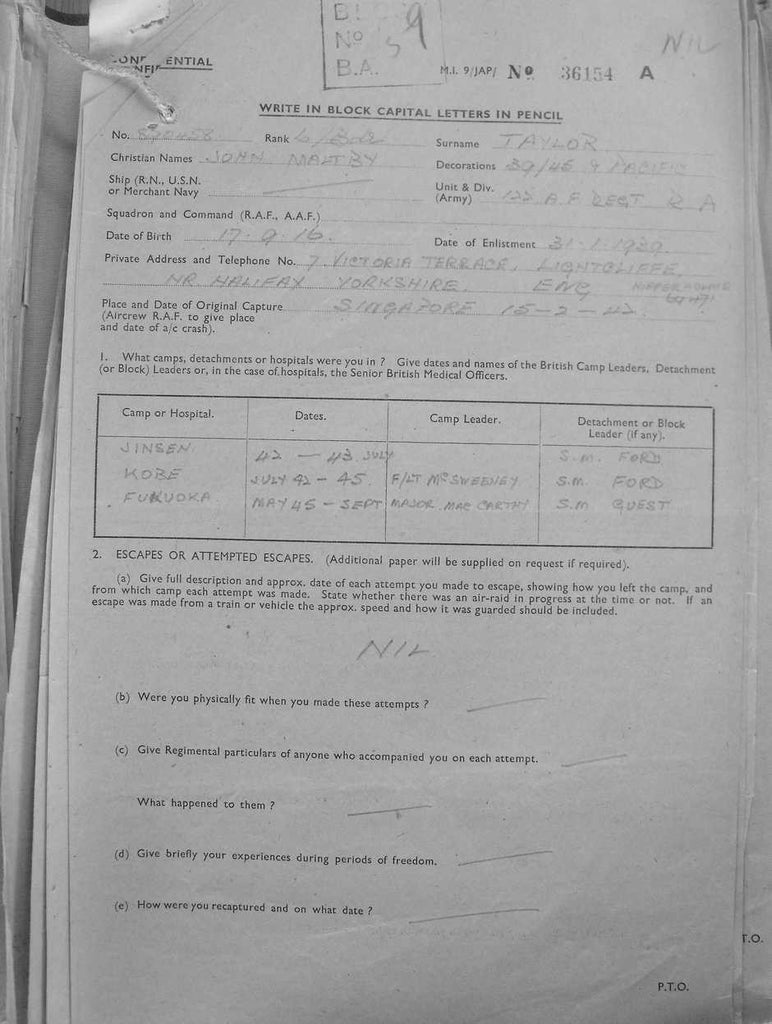 B.
No 59
B.A.
NIL
CONFIDENTIAL
M.I. 9/JAP/ No 36154 A
WRITE IN BLOCK CAPITAL LETTERS IN PENCIL
No. Rank L/BDR Surname TAYLOR
Christian Names JOHN MALTBY Decorations 39/45 & PACIFIC
Ship (R.N., U.S.N. or Merchant Navy
Unit & Div. (Army) 122 A.F REGT R A
Squadron and Command (R.A.F., A.A.F.)
Date of Birth 17.9.16. Date of Enlistment 31.1.1939.
Private Address and Telephone No. 7 VICTORIA TERRACE, LIGHTCLIFFE,
NR HALIFAX YORKSHIRE. ENG HIPPERHOLME
Place and Date of Original Capture SINGAPORE 15-2-42
(Aircrew R.A.F. to give place
and date of a/c crash).
1. What camps, detachments or hospitals were you in ? Give dates and names of the British Camp Leaders, Detachment
(or Block) Leaders or, in the case of hospitals, the Senior British Medical Officers.
Camp or Hospital. Dates. Camp Leader. Detachment or Block
Leader (if any).
JINSEN 42 - 43 JULY S.M. FORD
KOBE JULY 42 - 45. F/LT McSWEENEY S.M. FORD
FUKUOKA MAY 45 - SEPT MAJOR MAC CARTHY S.M GUEST
2. ESCAPES OR ATTEMPTED ESCAPES. (Additional paper will be supplied on request if required).
(a) Give full description and approx. date of each attempt you made to escape, showing how you left the camp, and
from which camp each attempt was made. State whether there was an air-raid in progress at the time or not. If an
escape was made from a train or vehicle the approx. speed and how it was guarded should be included.
NIL
(b) Were you physically fit when you made these attempts ?
(c) Give Regimental particulars of anyone who accompanied you on each attempt.
What happened to them ?
(d) Give briefly your experiences during periods of freedom.
(e) How were you recaptured and on what date ?
T.O.
P.T.O.